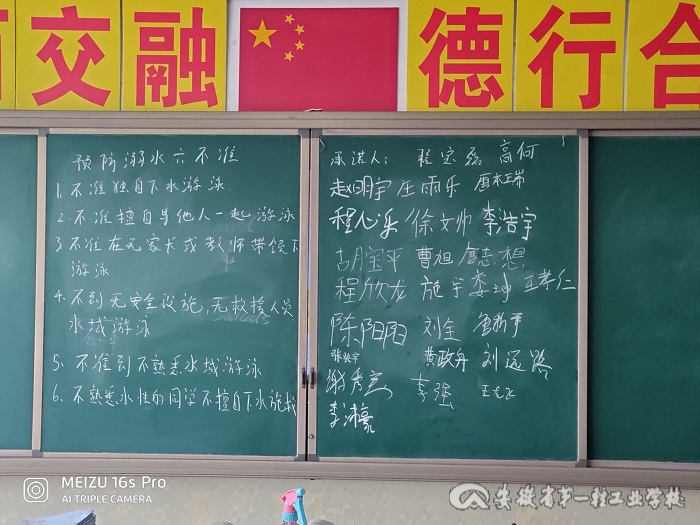 交融
德行合
预防溺水六不准
1、不准独自下水游泳
2、不准擅自与他人一起游泳
3、不准在无家长或教师带领下
游泳
4、不到无安全设施,无救援人员
水域游泳
5、不准到不熟悉水域游泳
6、不熟悉水性的同学不擅自下水施救
承诺人: 程宝磊 高何
赵明宇 庄雨乐
程心乐 徐文帅 李浩宇
胡宝平 曹旭 唐志想
程欣龙 施宇 娄坤 王孝仁
陈阳阳 刘全
黄政舟 刘远路
李强
MEIZU 16s Pro
AI TRIPLE CAMERA
安徽省第一轻工业学校